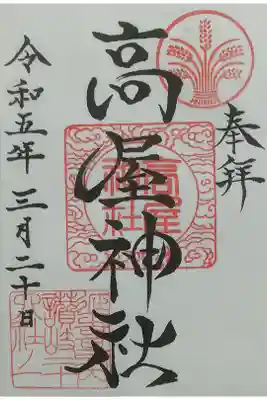 奉拝
高屋神社
高屋神社
令和五年三月二十日